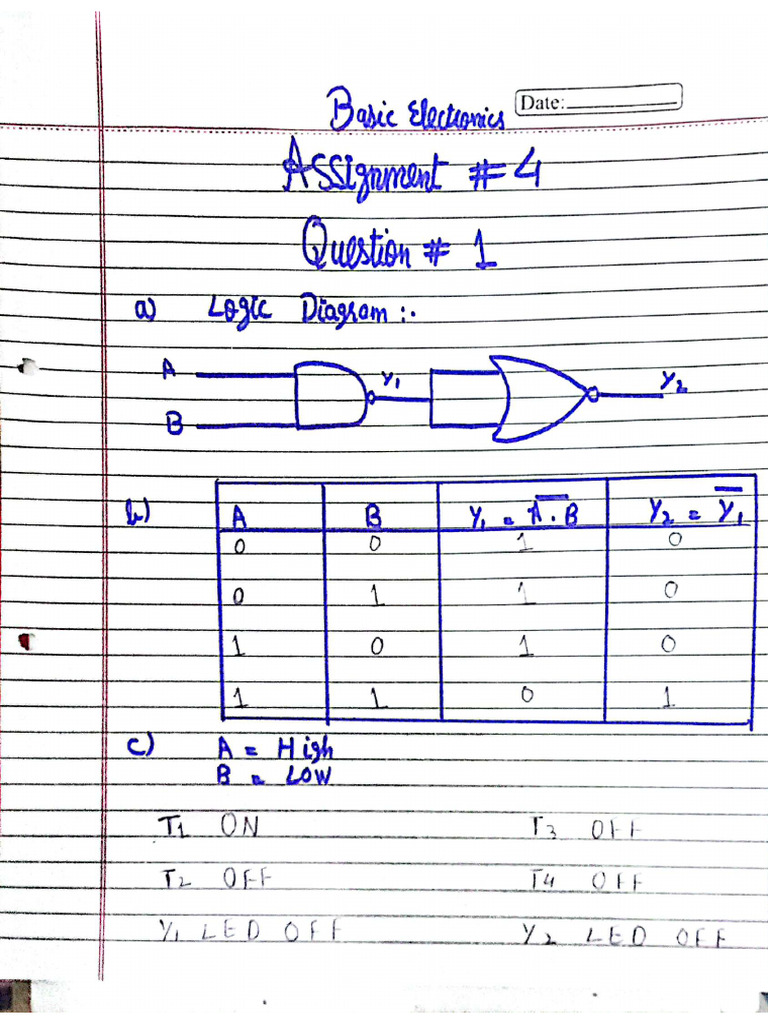 Basic Electronics
Date:
Assignment # 4
Question # 1
a) Logic Diagram :.
A Y₁ Y₂
B
b) A B Y₁ = A̅.̅B̅ Y₂ = Y̅₁
0 0 1 0
0 1 1 0
1 0 1 0
1 1 0 1
c) A = High
B = Low
T1 ON T3 OFF
T2 OFF T4 OFF
Y₁ LED OFF Y₂ LED OFF